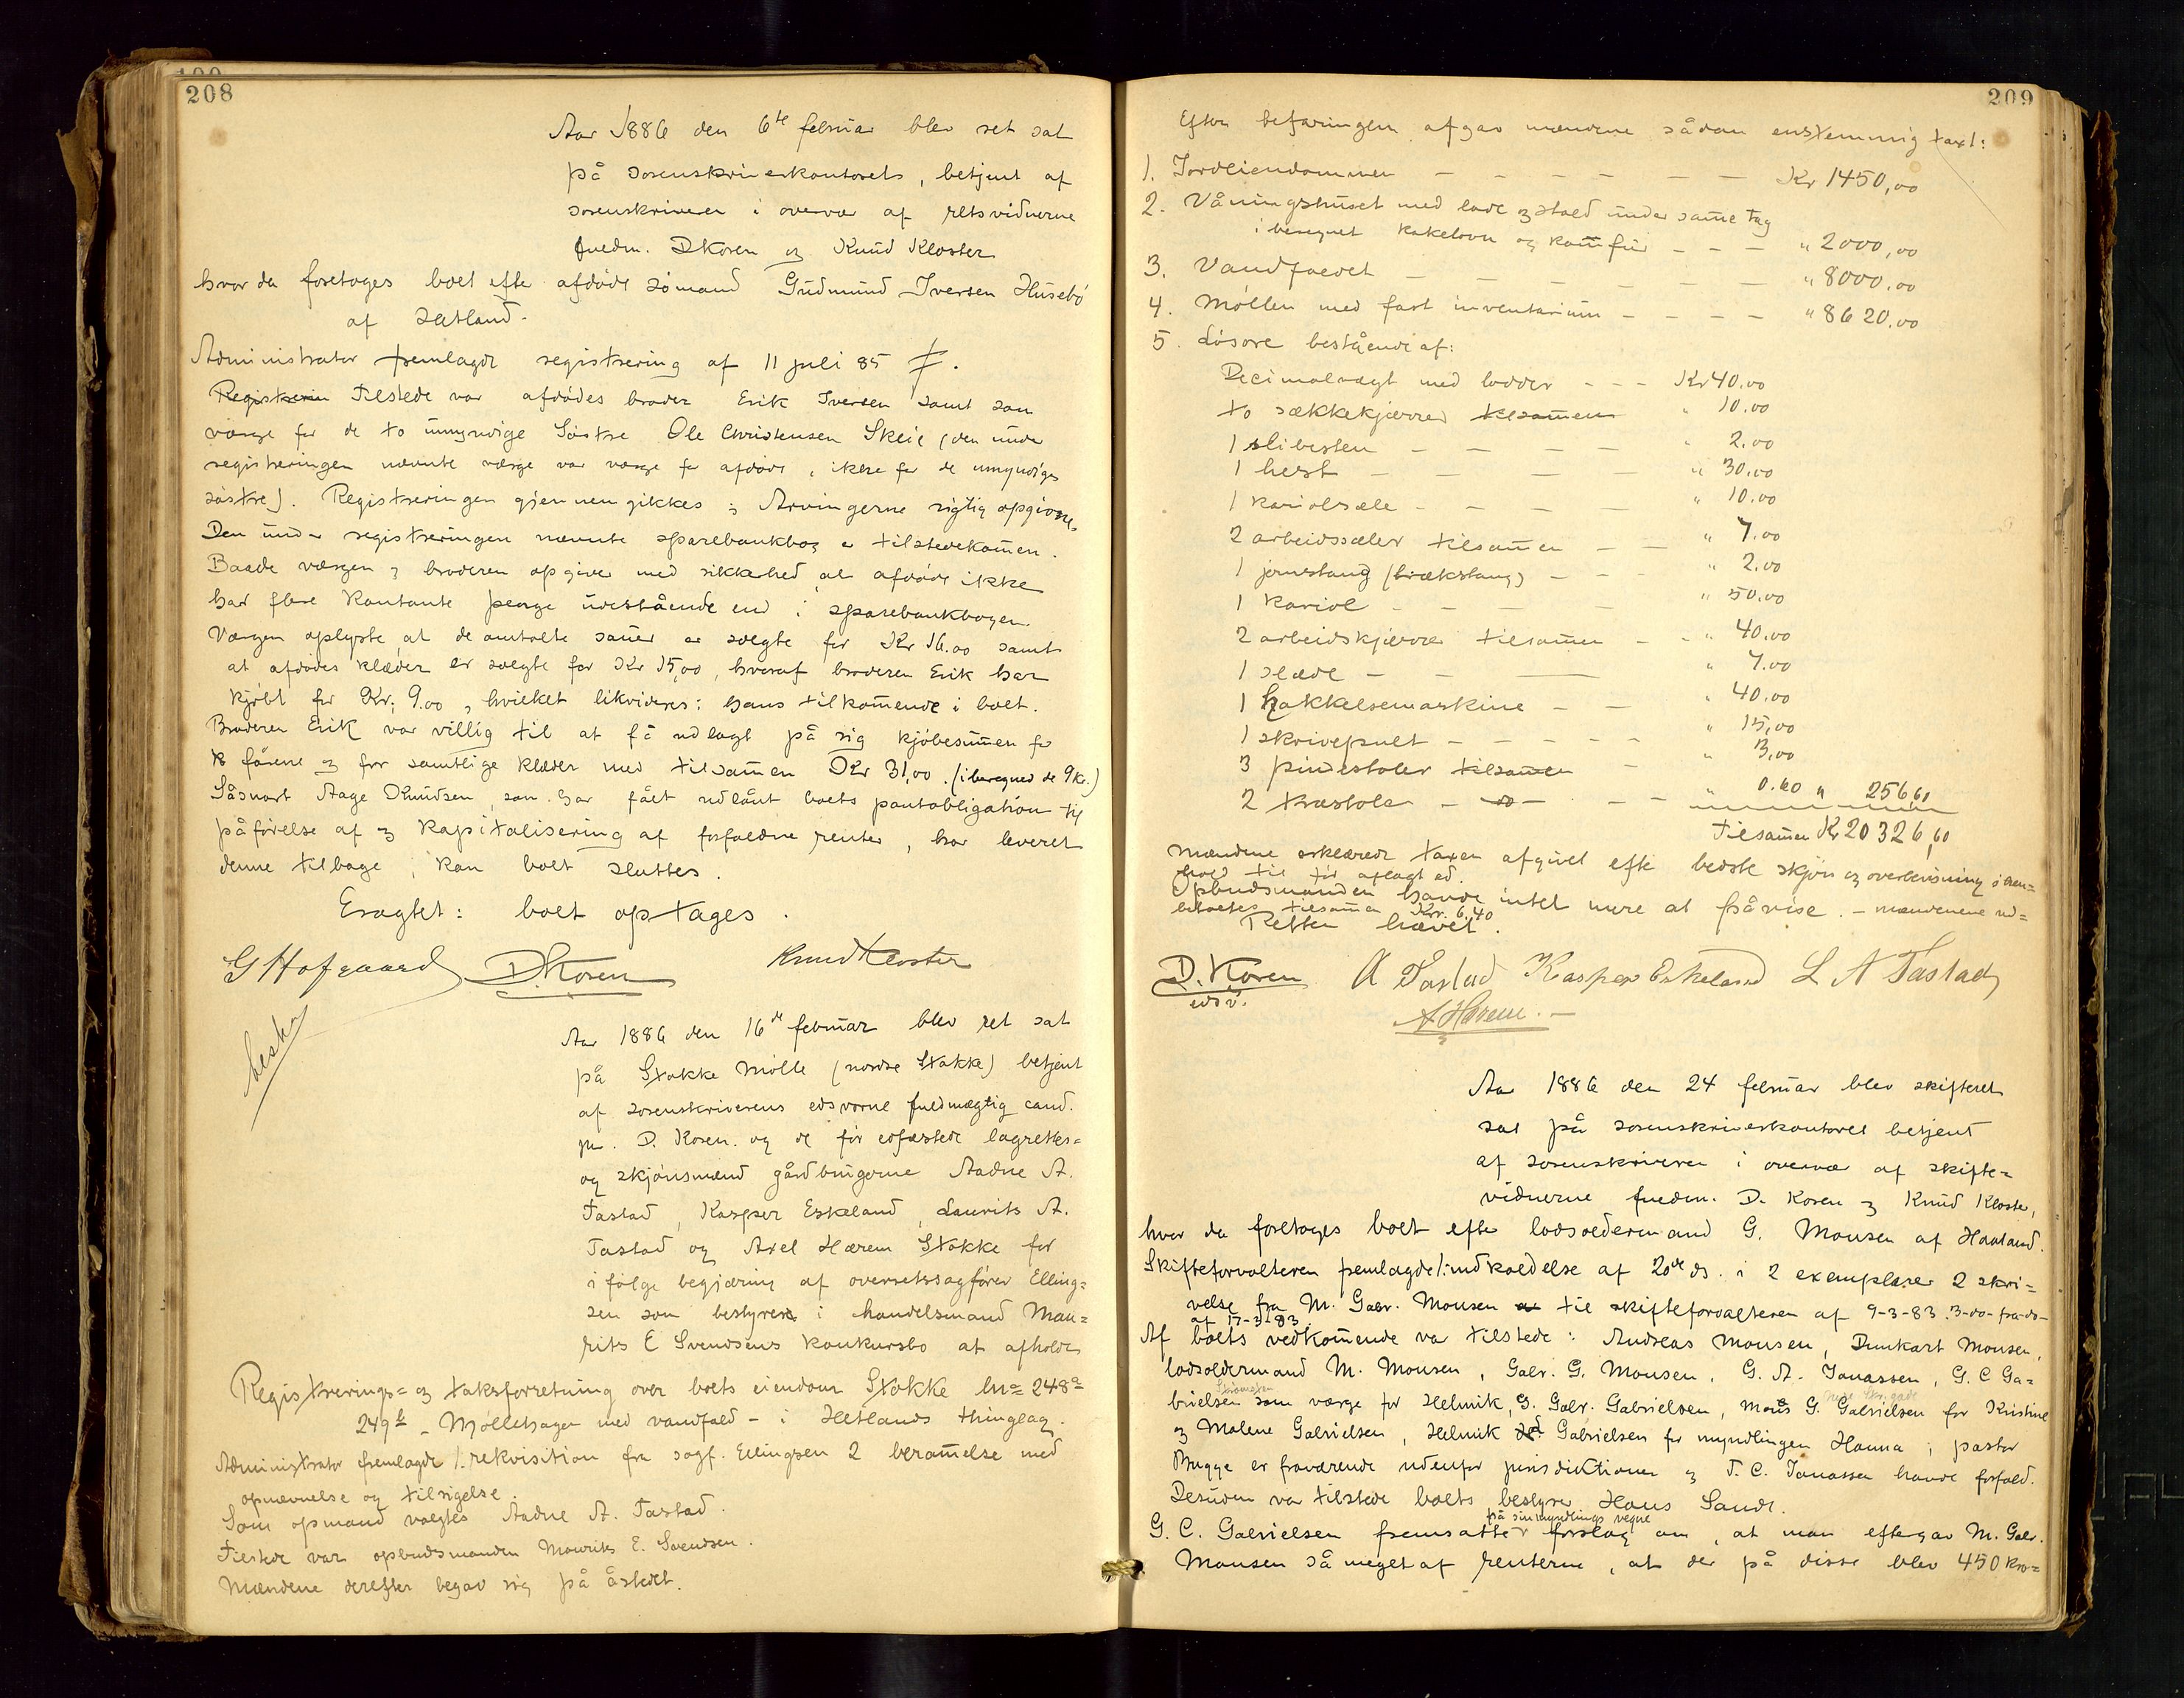 208
Aar 1886 den 6te februar blev ret sat
på sorenskriverkontorets, betjent af
sorenskriveren i overvær af retsvidnerne
fuldm. D Koren og Knud Kloster
hvor da foretoges boet efter afdøde sømand Gudmund Iversen Husebø
af Hetland.
Administrator fremlagde registrering af 11 juli 85
Registrerin Tilstede var afdødes broder Erik Iversen samt som
værge for de to umyndige Søstre Ole Christensen Skeie (den under
registreringen nævnte værge var værge for afdøde, ikke for de umyndige
søstre). Registreringen gjennemgikkes; Arvingerne rigtig opgivne.
Den under registreringen nævnte sparebankbog er tilstedekommen.
Baade værgen og broderen opgiver med sikkerhed at afdøde ikke
har flere kontante penge udestående end i sparebankbogen.
Værgen oplyste at de omtalte sauer er solgte for Kr 16.00 samt
at afdødes klæder er solgte for Kr 15,00, hvoraf broderen Erik har
kjøbt for Kr. 9.00, hvilket likvideres i hans tilkommende i boet.
Broderen Erik var villig til at få udlagt på sig kjøbesummen for
fårene og for samtlige klæder med tilsammen Kr 31,00. (iberegned de 9 kr.)
Såsnart Aage Knudsen, som har fået udlånt boets pantobligation til
påførelse af og kapitalisering af forfaldne renter, har leveret
denne tilbage, kan boet sluttes.
Eragtet: boet optages.
G Hofgaard D Koren Knud Kloster
besk
Aar 1886 den 16de februar blev ret sat
på Stokke Mølle (nordre Stokke) betjent
af sorenskriverens edsvorne fuldmægtig cand.
jur. D. Koren og de før edfæstede lagrettes-
og skjønsmænd gårdbrugerne Aadne A.
Tastad, Kasper Eskeland, Laurits A.
Tastad og Axel Hærem Stokke for
ifølge begjæring af overretssagfører Elling-
sen som bestyrer i handelsmand Mau-
rits E Svendsens konkursbo at afholde
Registrerings- og taksforretning over boets eiendom Stokke lnr 248a
249b - Møllehagen med vandfald - i Hetlands thinglag.
Administrator fremlagde 1. rekvisition fra sagf. Ellingsen 2 berammelse med
opnævnelse og tilsigelse.
Som opmand valgtes Aadne A. Tastad.
Tilstede var opbudsmanden Maurits E. Svendsen.
Mændene derefter begav sig på åstedet.
209
Efter befaringen afgav mændene sådan enstemmig taxt:
1. Jordeiendommen - - - - - - Kr 1450,00
2. Våningshuset med lade og stald under samme tag
iberegnet kakelovn og komfur - - - " 2000,00
3. Vandfaldet - - - - - - " 8000.00
4. Møllen med fast inventarium - - - - " 8620.00
5. Løsøre bestående af:
Decimalvægt med lodder - - - Kr 40.00
to sækkekjærrer tilsammen " 10.00
1 slibesten - - - - " 2.00
1 hest - - - " 30.00
1 kariolsele - - - - " 10.00
2 arbeidsseler tilsammen - - " 7.00
1 jernstang (brækstang) - - - " 2.00
1 kariol - - - - " 50.00
2 arbeidskjærrer tilsammen - - " 40.00
1 slæde - - - " 7.00
1 hakkelsemaskine - - " 40.00
1 skrivepult - - - - - " 15,00
3 pindestoler tilsammen - " 3,00
2 træstoler - do - - - " 0.60 " 256,60
Tilsammen Kr 20326,60
Mændene erklærede taxen afgivet efter bedste skjøn og overbevisning i hen-
hold til før aflagt ed.
Opbudsmanden havde intet mere at påvise. - Mændenene ud-
betaltes tilsammen Kr. 6.40
Retten hævet.
D. Koren A Tastad Kasper Eskeland L A Tastad
edsv.
A Hærem.-
Aar 1886 den 24 februar blev skifteret
sat på sorenskriverkontoret betjent
af sorenskriveren i overvær af skifte-
vidnerne fuldm. D. Koren og Knud Kloster,
hvor da foretoges boet efter lodsoldermand G. Monsen af Haaland.
Skifteforvalteren fremlagde 1. indkaldelse af 20de ds. i 2 exemplarer 2 skri-
velse fra M. Gabr. Monsen til skifteforvalteren af 9-3-83. 3 -do- fra -do-
af 17-3-83.
Af boets vedkommende var tilstede: Andreas Monsen, Dunkart Monsen,
lodsoldermand M. Monsen, Gabr. G. Monsen, G. A. Jonassen, G. C Ga-
brielsen som værge for Helmik, G. Gabr. Gabrielsen, Mons G. Gabrielsen for Kristine
og Malene Gabrielsen, Helmik Gabrielsen for myndlingen Hanna; pastor
Brugge er fraværende udenfor jurisdiktionen og T. C. Jonassen havde forfald.
Desuden var tilstede boets bestyrer Hans Sande.
på sin myndlings vegne
G. C. Gabrielsen fremsatte forslag om, at man eftergav M. Gabr.
Monsen så meget af renterne, at der på disse blev 450 kro-